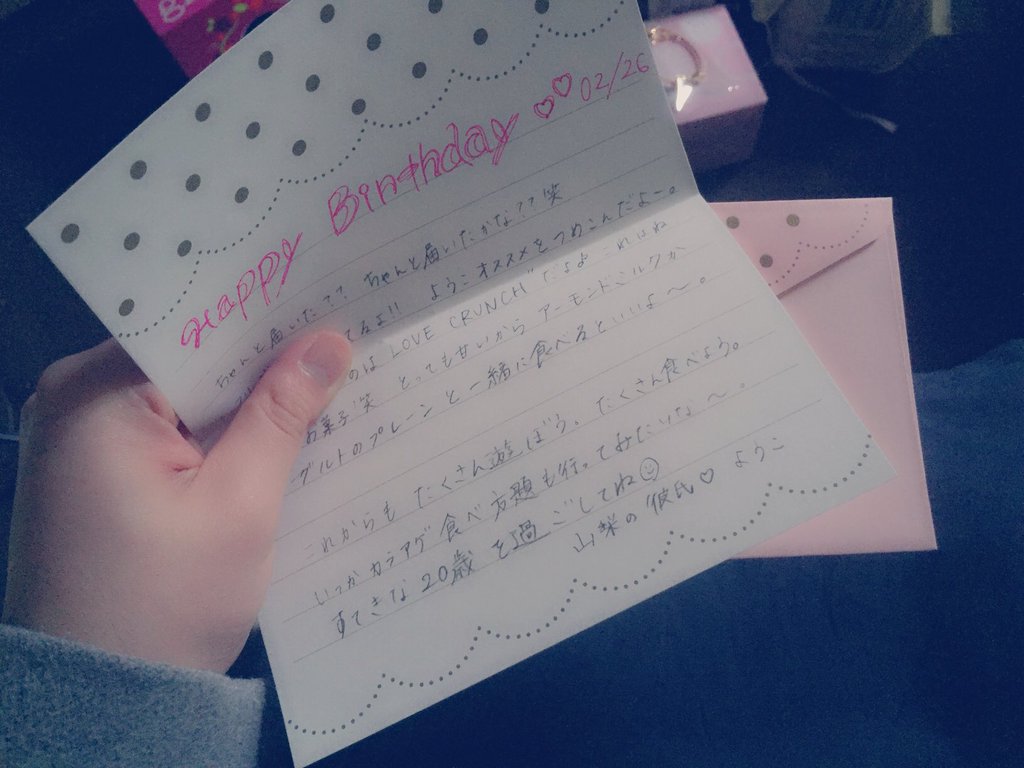 Happy Birthday ♡♡ 02/26
ちゃんと届いた?? ちゃんと届いたかな??笑
てるよ!! ようこオススメをつめこんだよー。
のは LOVE CRUNCH だよよ これはね
お菓子笑 とっても甘いから アーモンドミルクか
グルトのプレーンと一緒に食べるといいよ〜。
これからも たくさん遊ぼう。たくさん食べよう。
いつかカラアゲ食べ放題も行ってみたいな〜。
すてきな20歳を過ごしてね☺
山梨の彼氏♡ ようこ